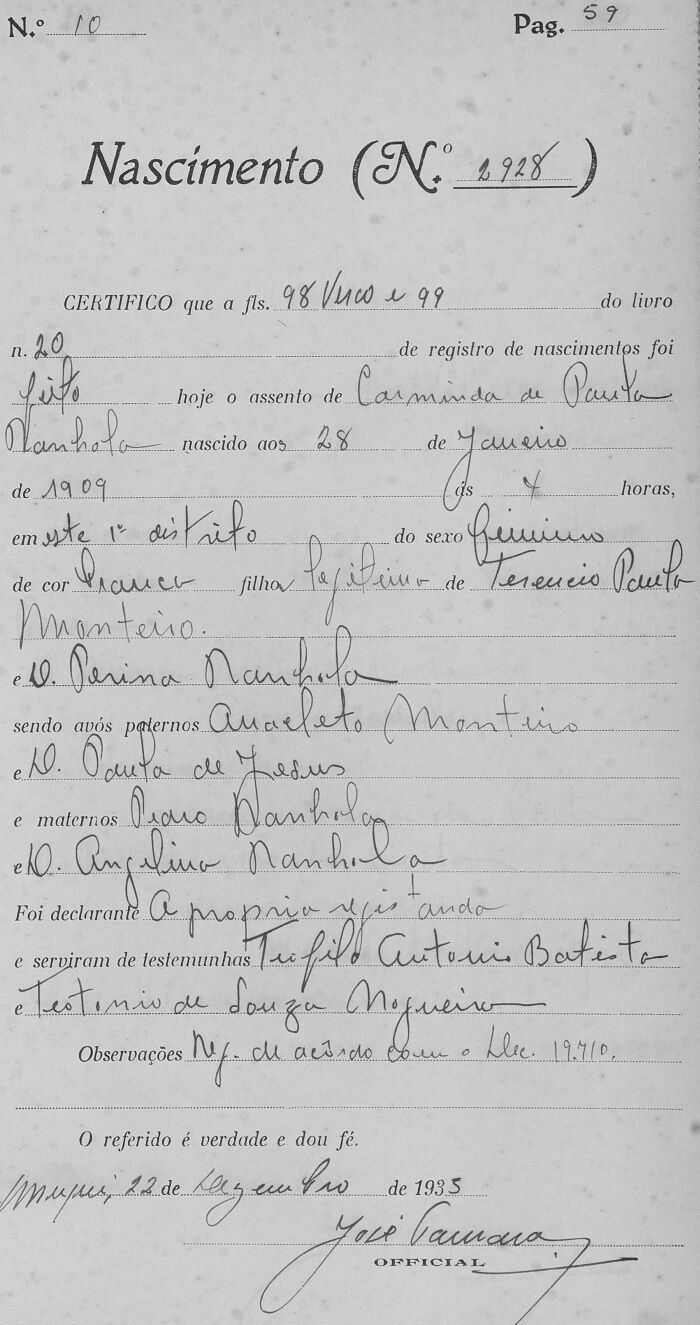 N.º 10 Pag. 59
Nascimento (N.º 2928)
CERTIFICO que a fls. 98 Verso e 99 do livro
n. 20 de registro de nascimentos foi
feito hoje o assento de Carminda de Paula
Nanhola nascido aos 28 de Janeiro
de 1909 ás 4 horas,
em este 1º distrito do sexo feminino
de cor branca filha legitima de Terencio Paula
Monteiro.
e D. Perina Nanhola
sendo avós paternos Anacleto Monteiro
e D. Paula de Jesus
e maternos Pedro Nanhola
e D. Angelina Nanhola
Foi declarante A propria registanda
e serviram de testemunhas Teofilo Antonio Batista
e Teotonio de Souza Nogueira
Observações Reg. de acôrdo com o Dec. 19.710.
O referido é verdade e dou fé.
Muqui, 22 de Dezembro de 1933
José
OFFICIAL